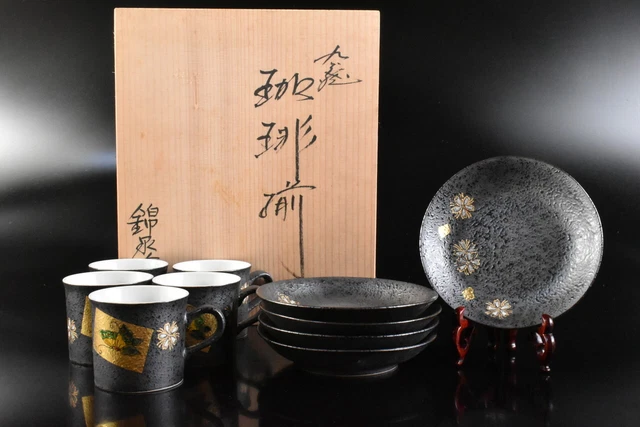 九谷
珈琲揃
錦泉